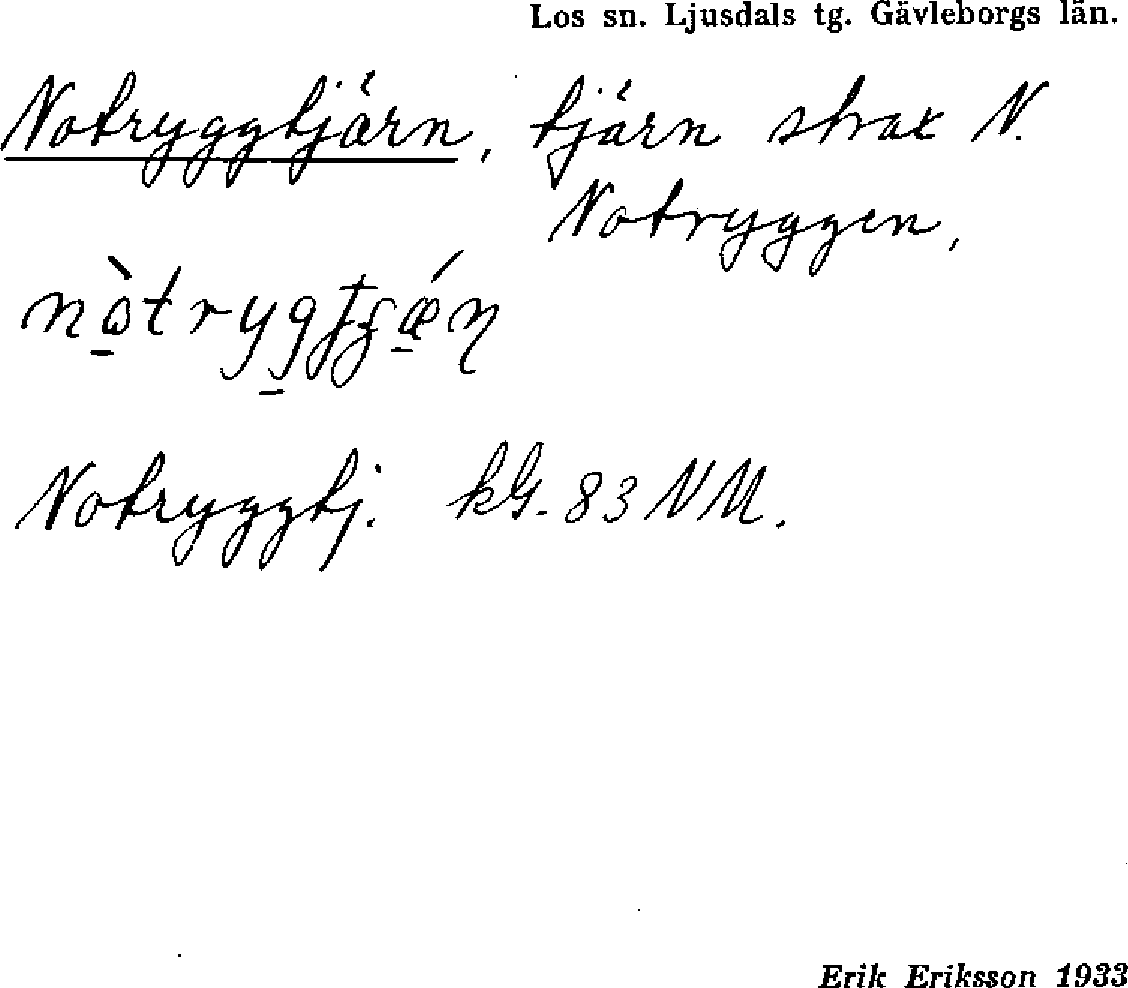 Los sn. Ljusdals tg. Gävleborgs län.
Notryggtjärn, tjärn strax N.
Notryggen,
Notryggtj. kG. 83 NM.
Erik Eriksson 1933